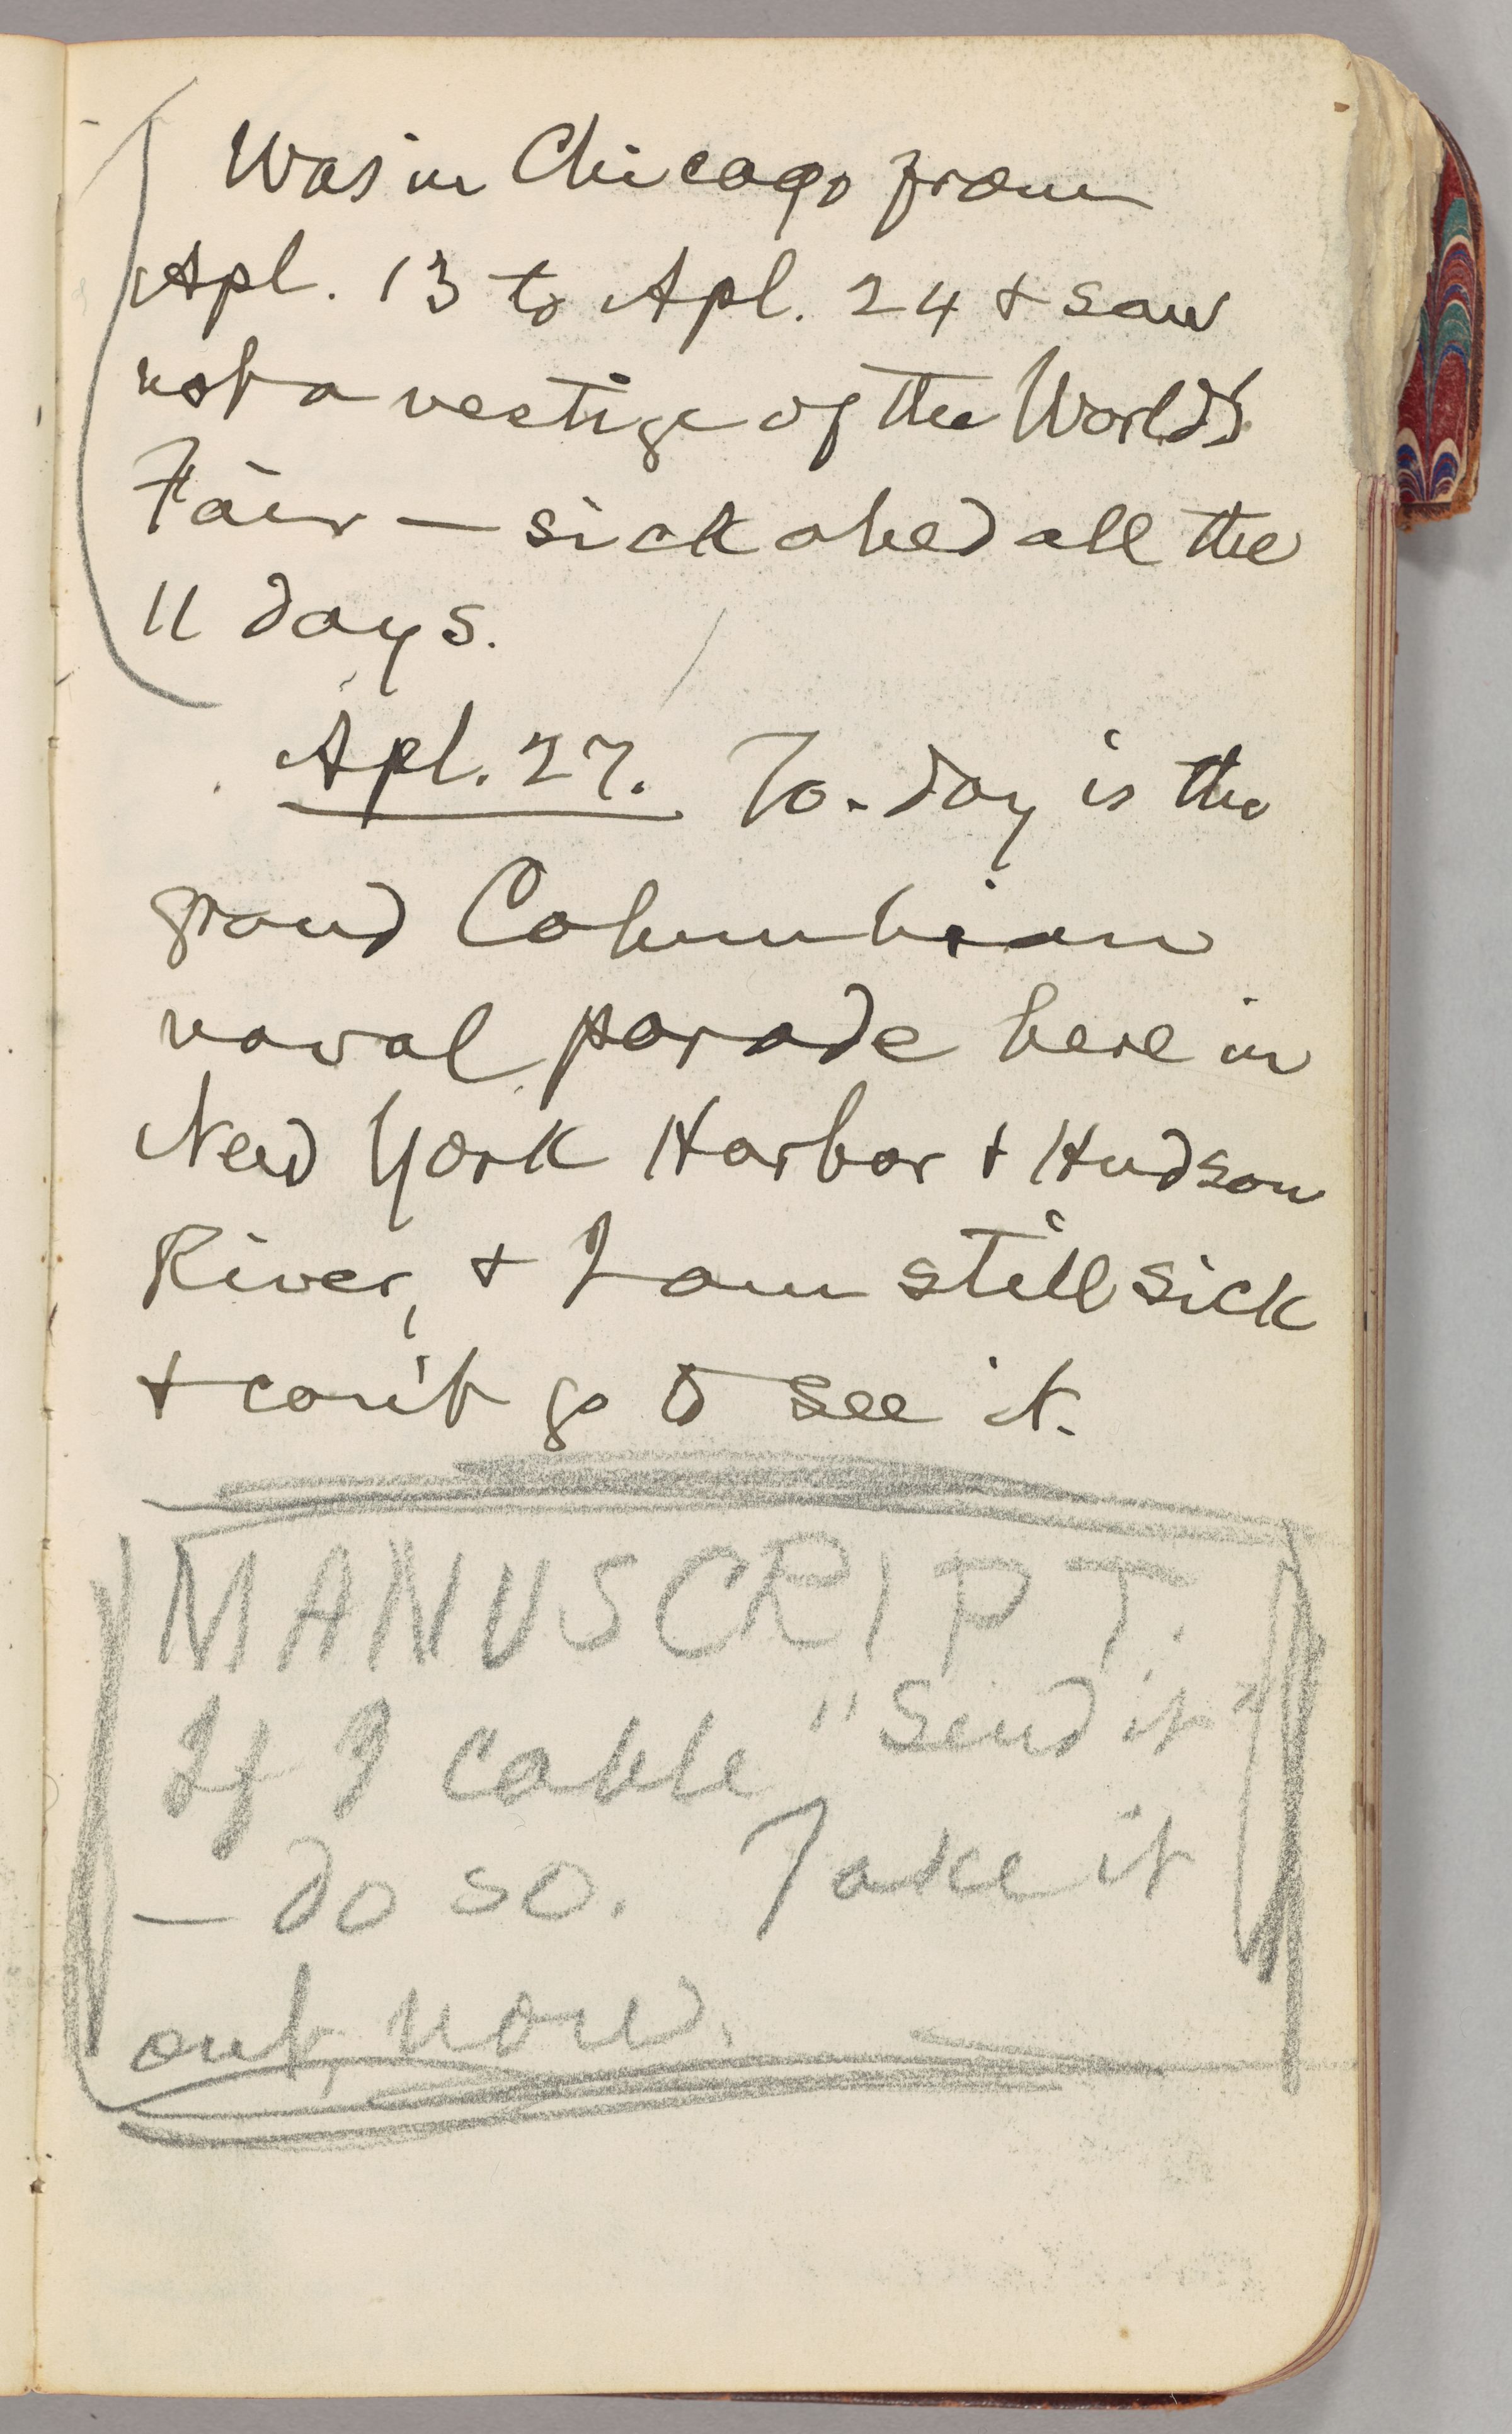 Was in Chicago from
Apl. 13 to Apl. 24 & saw
not a vestige of the World's
Fair — sick abed all the
11 days.
Apl. 27. To-day is the
grand Columbian
naval parade here in
New York Harbor & Hudson
River, & I am still sick
& can't go to see it.
MANUSCRIPT.
If I cable "Send it"
— do so. Take it
out, now.